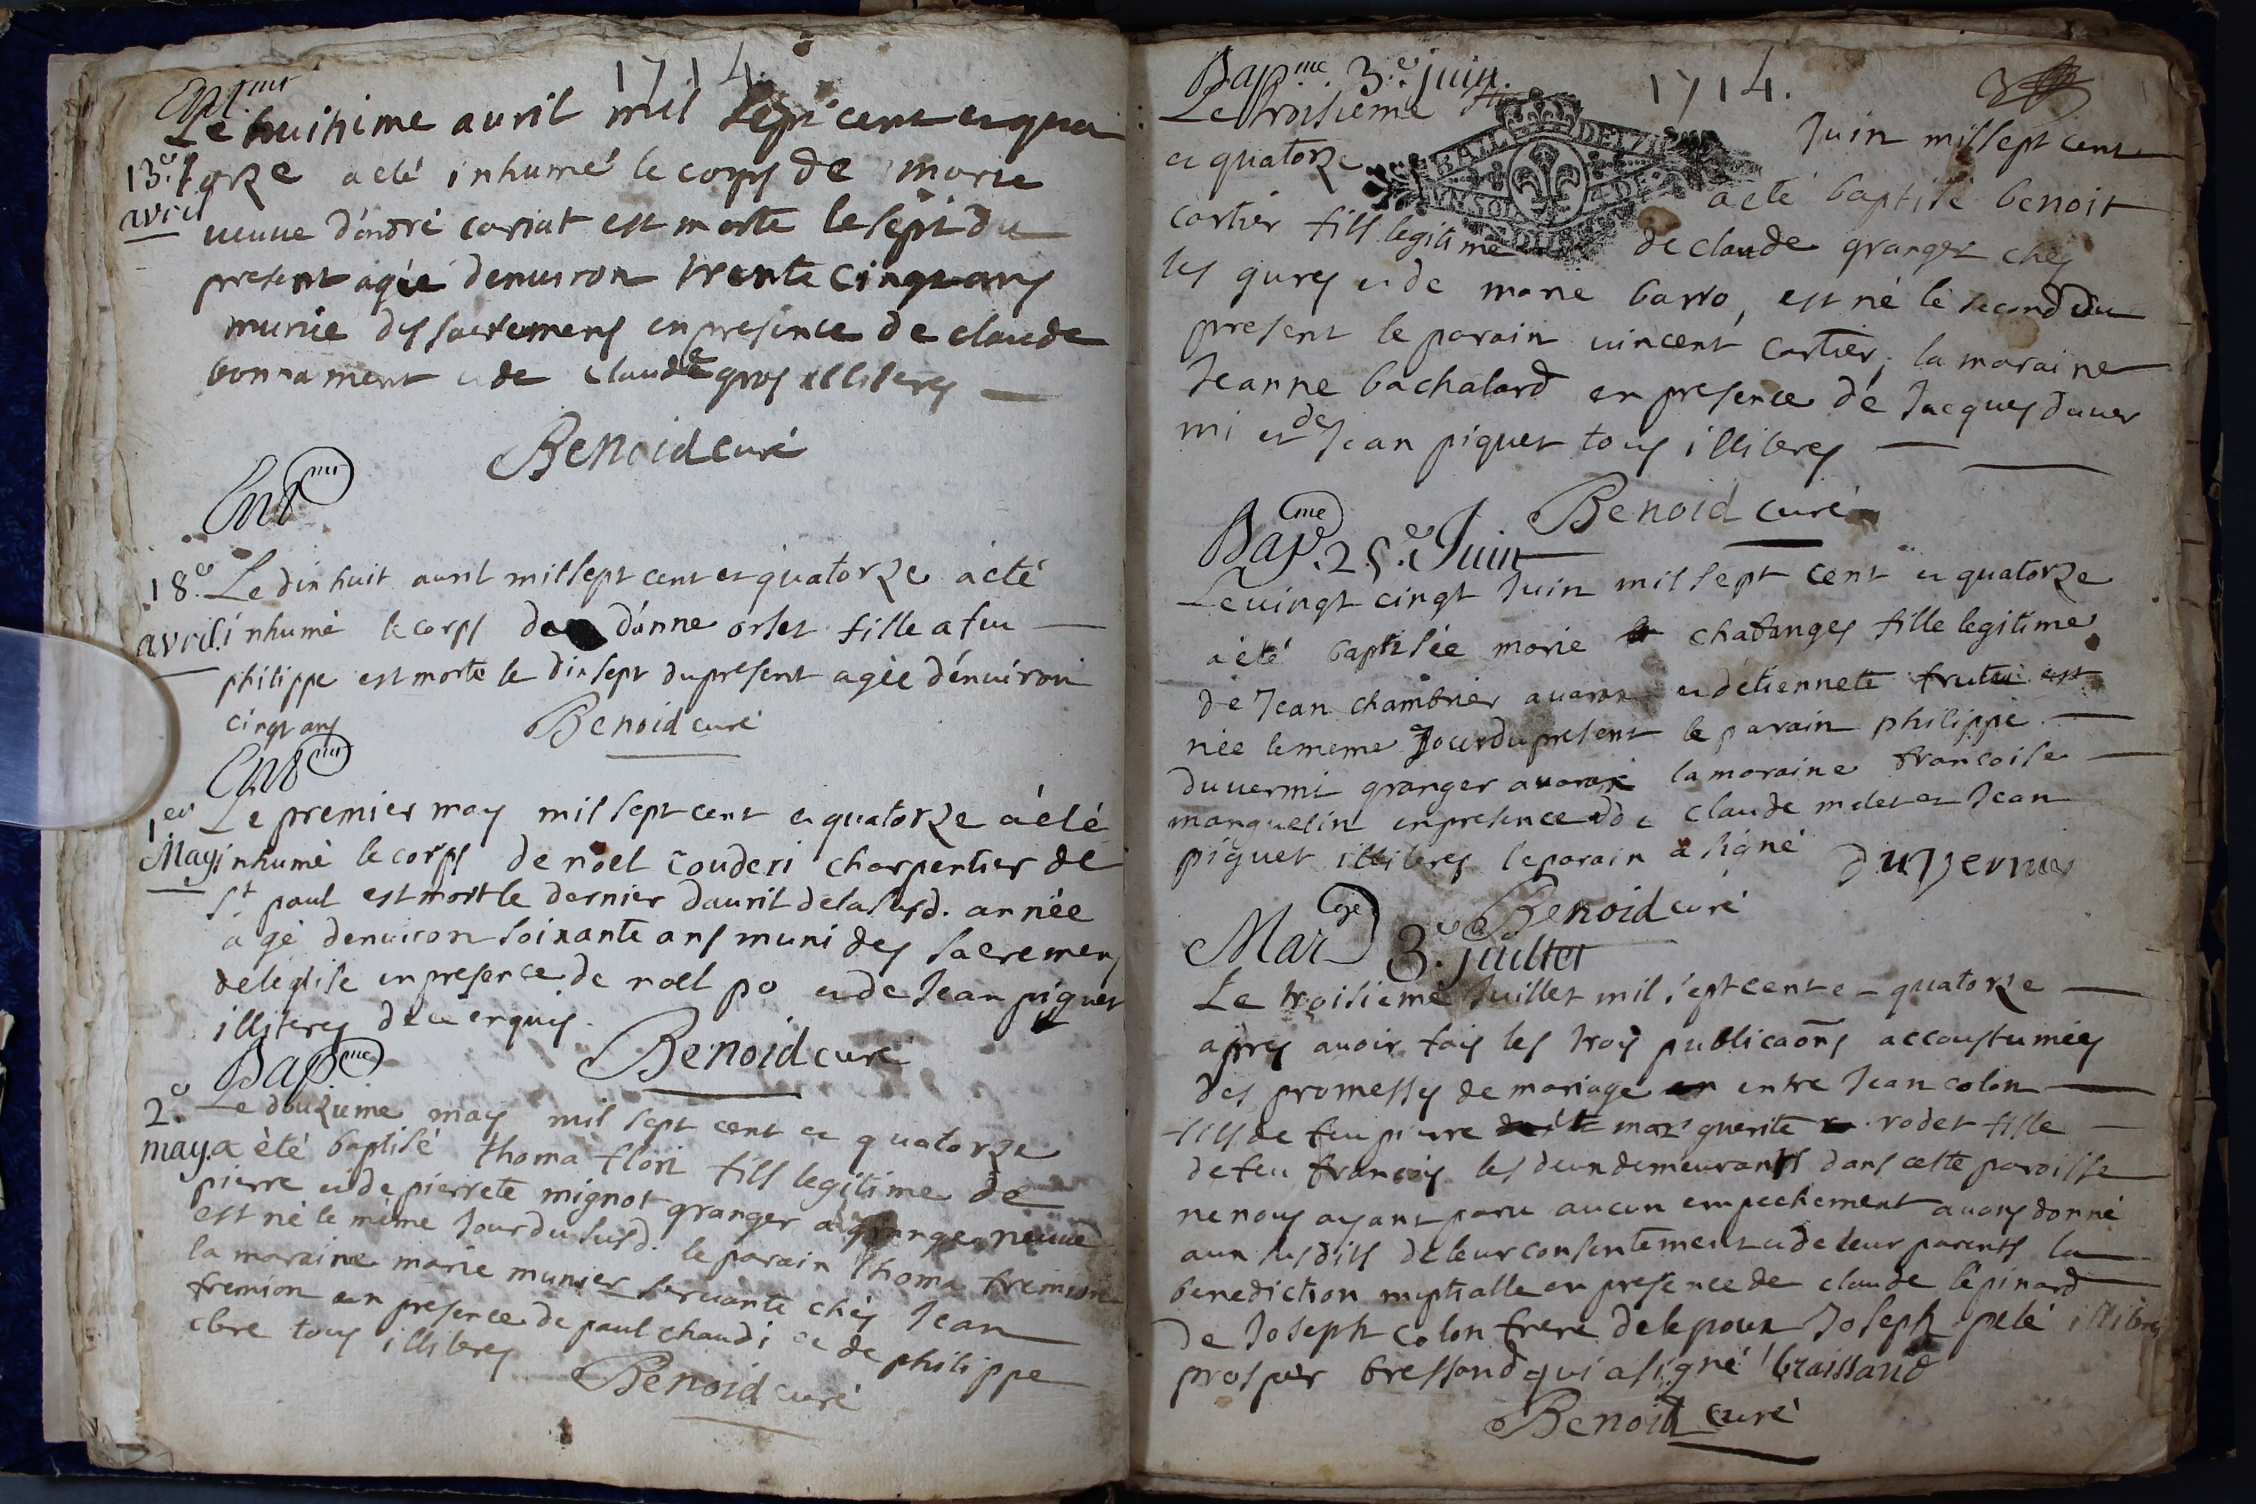 1714.
Ent.mt
Le huitime auril mil sept cent et qua
13.e torze a eté inhumé le corps de marie
avril veuue d'andré coriat est morte le sept du
present agée denuiron trente cinqt ans
munie des sacremens en presence de claude
bonnament et de claude gros illiteres
Benoid curé
Ent.mt
18.e Le dix huit auril mil sept cent et quatorze a eté
avril. inhumé le corps de d'anne orset fille a feu
philippe est morte le dix sept du present agée d'enuiron
cinqt ans Benoid curé
Ent.mt
1.er Le premier may mil sept cent et quatorze a été
May inhumé le corps de noel couderi charpentier de
St paul est mort le dernier dauril de la susd. année
agé denuiron soixante ans muni des sacremens
de leglise en presence de noel po et de Jean piquet
illiteres de ce enquis.
Bap.me Benoid curé
2.e Le douzieme may mil sept cent et quatorze
may. a été baptisé thoma flori fils legitime de
pierre et de pierrete mignot granger a grange neuue
est né le même Jour du susd. le parain thoma fremion
la maraine marie munier seruante chés Jean
fremion en presence de paul chaudi et de philippe
clere tous illiteres
Benoid curé
Bap.me 3.e juin.
1714.
Le troisieme Juin mil sept cent
et quatorze a eté baptisé benoit
cartier fils legitime de claude granger chés
les gures et de marie barro, est né le second du
present le parain vincent cartier, la maraine
Jeanne bachalard en presence de Jacques duuer
mi et de Jean piquet tous illiteres
Benoid curé
Bap.me 25.e Juin
Le uingt cingt Juin mil sept cent et quatorze
a été baptisée marie chafanges fille legitime
de Jean chambrier a uaran et détiennete frutu est
née le meme Jour du present le parain philippe
duuermi granger a uaran la maraine francoise
manguelin en presence de claude melet et Jean
piquet illiteres le parain a signé duvernus
Benoid curé
Mar.age 3.e juillet
Le troisieme Juillet mil sept cent e quatorze
apres auoir fais les trois publicaons accoustumées
des promesses de mariage entre Jean colon
fils de feu pierre marguerite rodet fille
de feu francois les deux demeurants dans cette paroisse
ne nous ayant paru aucun empechement auons donné
aux susdits de leur consentement et de leur parents la
benediction nuptialle en presence de claude lépinard
de Joseph colon frere de lepoux Joseph pelé illiteres
prosper bressand qui a signé braissand
Benoid curé